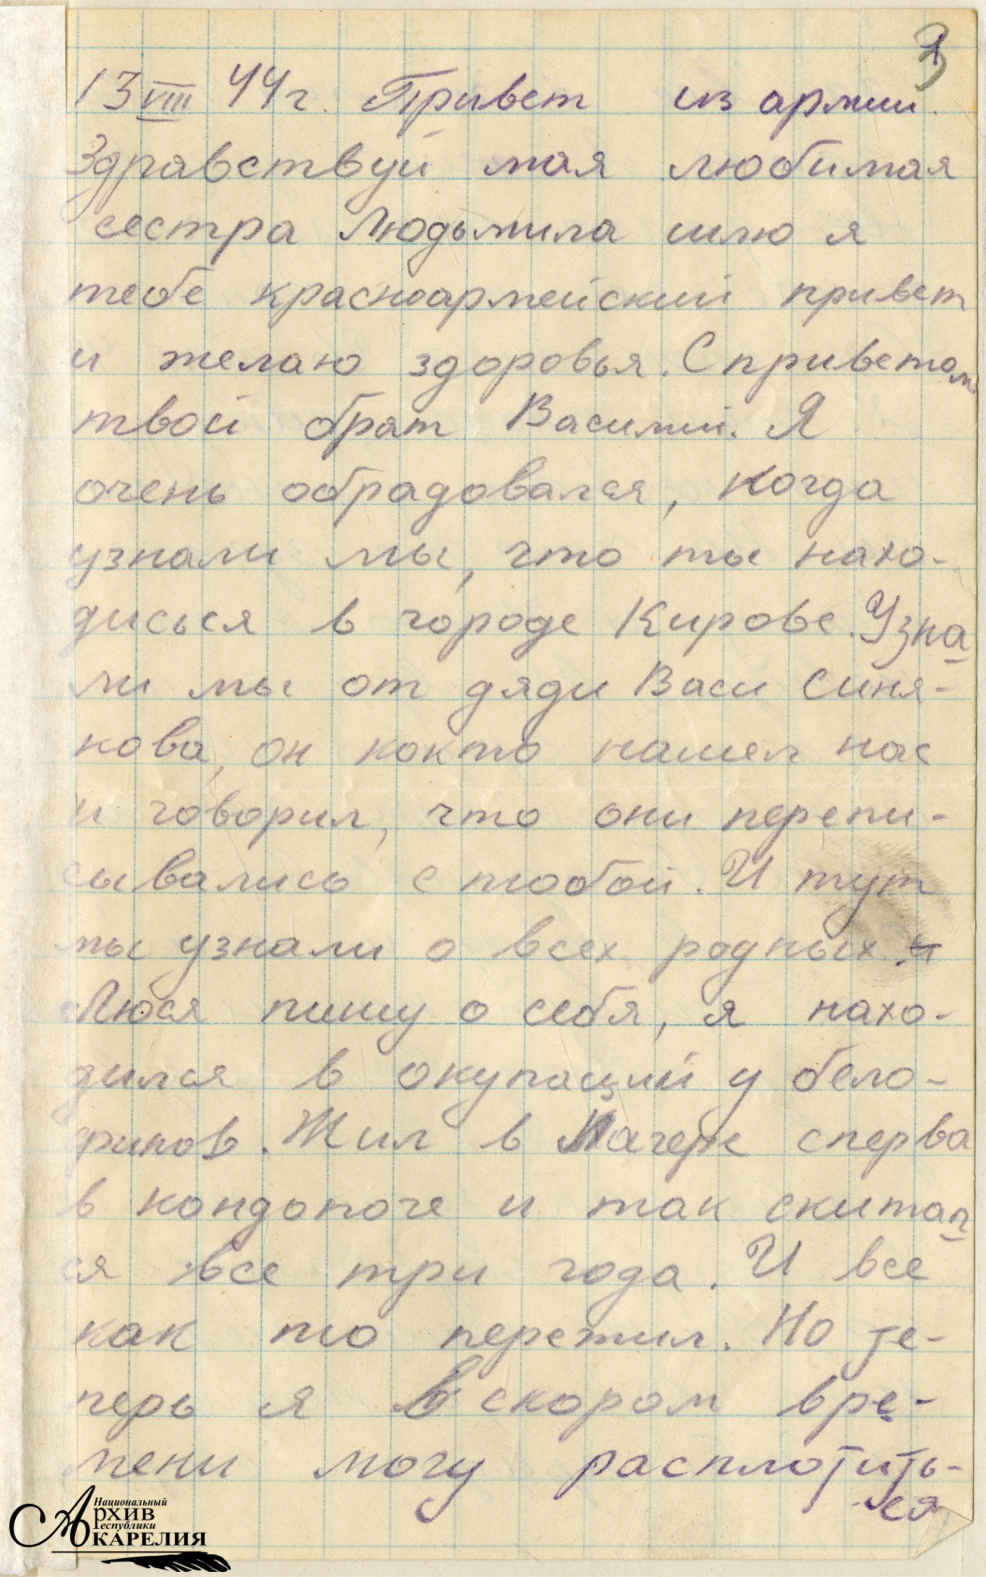 13 VIII 44 г. Привет из армии.
Здравствуй мая любимая
сестра Людьмила шлю я
тебе красноармейский привет
и желаю здоровья. С приветом
твой брат Василий. Я
очень обрадовался, когда
узнали мы, что ты нахо-
дисься в городе Кирове. Узна
ли мы от дяди Васи Синя-
кова, он както нашел нас
и говорил, что они перепи-
сывались с тобой. И тут
мы узнали о всех родных
Люся пишу о себя, я нахо-
дился в окупаций у бело-
финов. Жил в лагере сперва
в кондопоге и так скитал
ся все три года. И все
как то пережил. Но те-
перь я в скором вре-
мени могу расплотить-
ся
Национальный
Архив
Республики
Карелия